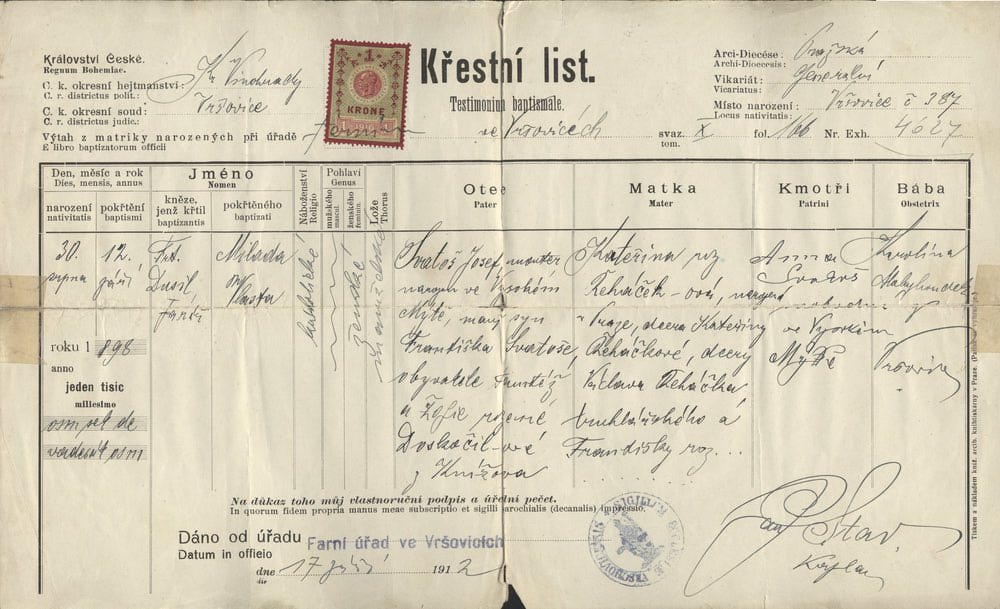 Království České.
Regnum Bohemiae.
C. k. okresní hejtmanství: Kr. Vinohrady
C. r. districtus polit.:
C. k. okresní soud: Vršovice
C. r. districtus judic.:
Výtah z matriky narozených při úřadě
E libro baptizatorum officii
1
KRONE
Křestní list.
Testimonium baptismale.
ve Vršovicích
Arci-Diecése: Pražská
Archi-Dioecesis:
Vikariát: Generalní
Vicariatus:
Místo narození: Vršovice č 387
Locus nativitatis:
svaz. X fol. 166 Nr. Exh. 4627
tom.
Den, měsíc a rok
Dies, mensis, annus
narození
nativitatis
pokřtění
baptismi
Jméno
Nomen
kněze,
jenž křtil
baptizantis
pokřtěného
baptizati
Náboženství
Religio
Pohlaví
Genus
mužského
mascul.
ženského
feminin.
Lože
Thorus
Otec
Pater
Matka
Mater
Kmotři
Patrini
Bába
Obstetrix
30.
srpna
12.
září
roku 1898
anno
jeden tisíc
millesimo
osm set de
vadesát osm
Frt.
Dusil,
Farář
Milada
Vlasta
katolické
ženské
manželské
Svatoš Josef, monter
narozen ve Vysokém
Mýtě, manž. syn
Františka Svatoše,
obyvatele tamtéž
a Žofie rozené
Doskočil-ové
z Knížova
Kateřina roz
Řeháček-ová, narozena
v Praze, dcera Kateřiny
Řeháčkové, dcery
Václava Řeháčka,
truhlářského a
Františky roz...
Anna
Svatoš
svobodná
ve Vysokém
Mýtě
Karolina
z
Vršovic
Na důkaz toho můj vlastnoruční podpis a úřední pečet.
In quorum fidem propria manus meae subscriptio et sigilli parochialis (decanalis) impressio.
Dáno od úřadu Farní úřad ve Vršovicích
Datum in officio
dne 17 září 1912
die
Jan Šťáv
Kaplan